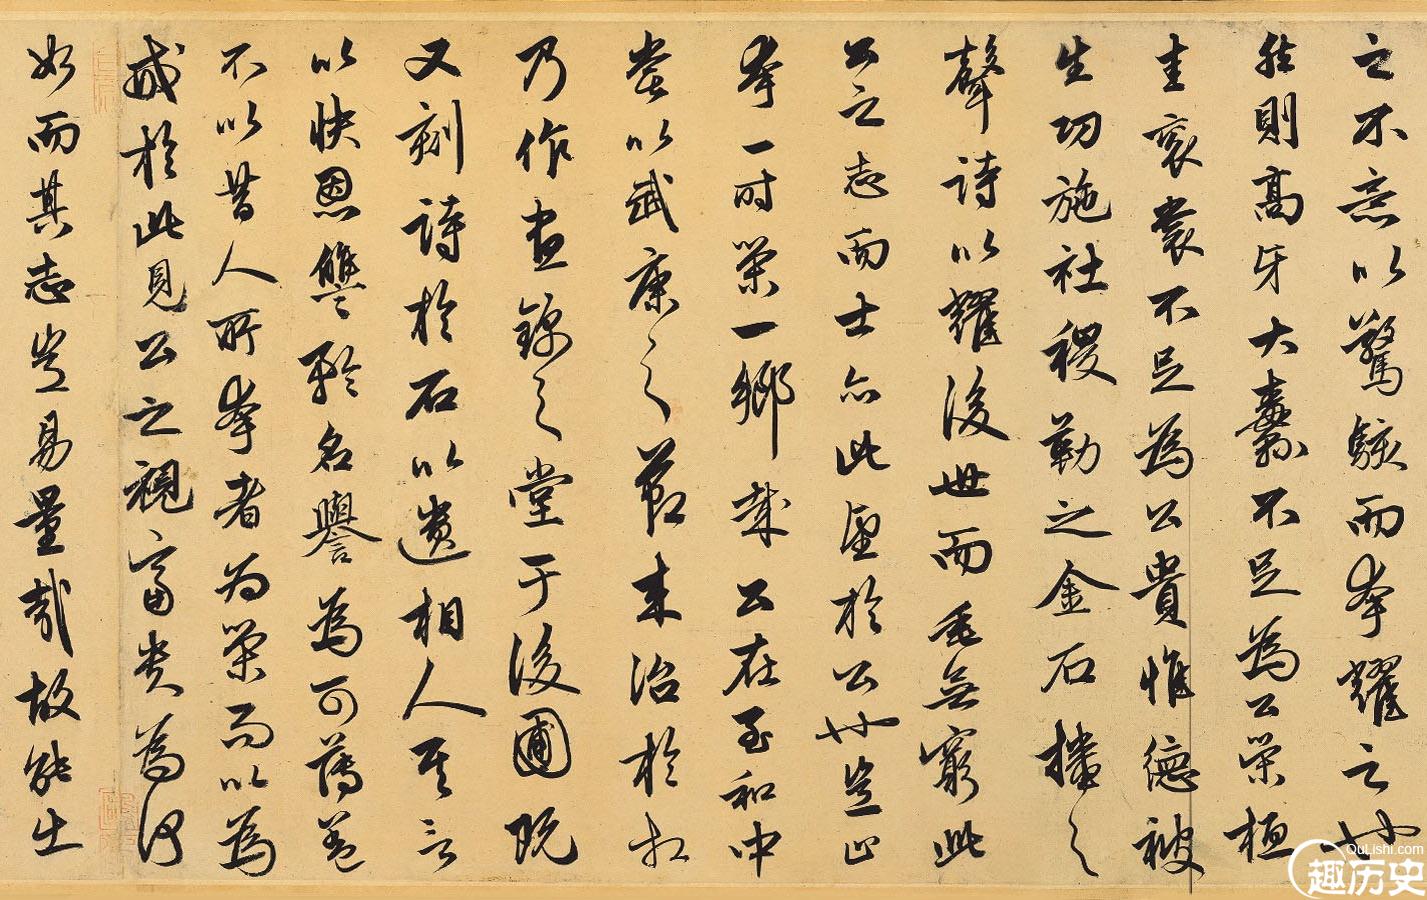 之不意以驚駭而夸耀之也
然則高牙大纛不足為公榮桓
圭袞裳不足為公貴惟德被
生功施社稷勒之金石播之
聲詩以耀後世而垂無窮此
公之志而士亦此望於公也豈止
夸一时榮一鄉哉公在至和中
嘗以武康之節来治於相
乃作晝錦之堂于後圃既
又刻詩於石以遺相人其言
以快恩讎矜名譽為可薄蓋
不以昔人所夸者為榮而以為
戒於此見公之視富貴為何
如而其志豈易量哉故能出
QuLishi.com
趣历史